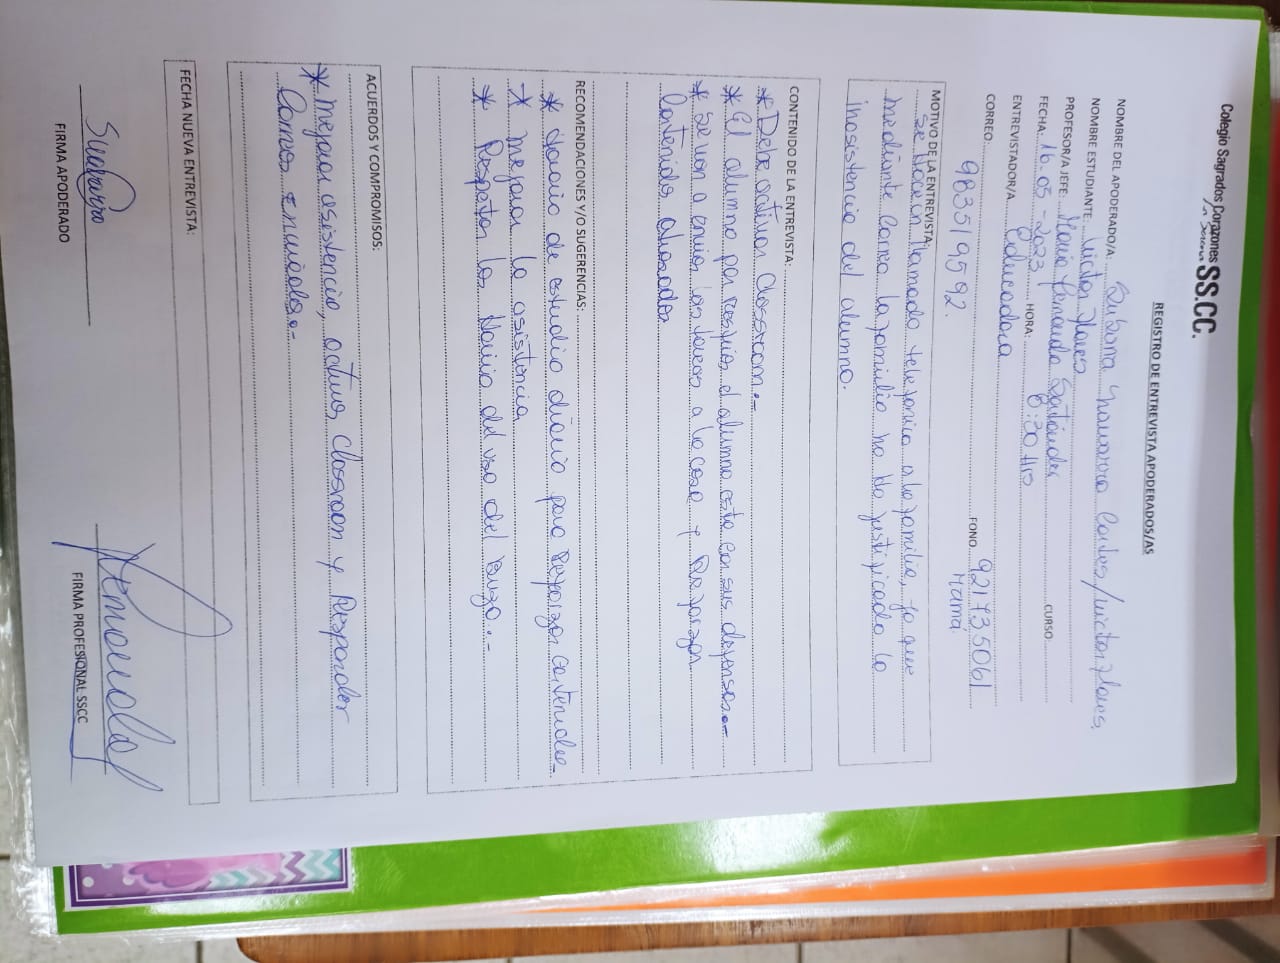 Colegio Sagrados Corazones
La Serena SS.CC.
REGISTRO DE ENTREVISTA APODERADOS/AS
NOMBRE DEL APODERADO/A: Subana Navarro Cortes / Victor Flores
NOMBRE ESTUDIANTE: Victor Flores
PROFESOR/A JEFE: María Fernanda Santander CURSO:
FECHA: 16-05-2023 HORA: 8:30 Hrs
ENTREVISTADOR/A Educadora
CORREO: FONO 921735061
983519592. Mamá.
MOTIVO DE LA ENTREVISTA:
Se Hace un llamado telefonico a la familia, ya que
mediante Correo la familia no ha justificado la
inasistencia del alumno.
CONTENIDO DE LA ENTREVISTA:
* Debe activar Classroom.-
* El alumno por resfrio el alumno esta con sus defensas.-
* Se van a enviar las tareas a la casa y Reforzar
Contenidos abordados
RECOMENDACIONES Y/O SUGERENCIAS:
* Horario de estudio diario para Reforzar contenidos-
* mejorar la asistencia
* Respetar los Horario del uso del buzo.-
ACUERDOS Y COMPROMISOS:
* mejorar asistencia, activar Classroom y Responder
Correos Enviados.-
FECHA NUEVA ENTREVISTA:
FIRMA APODERADO FIRMA PROFESIONAL SSCC